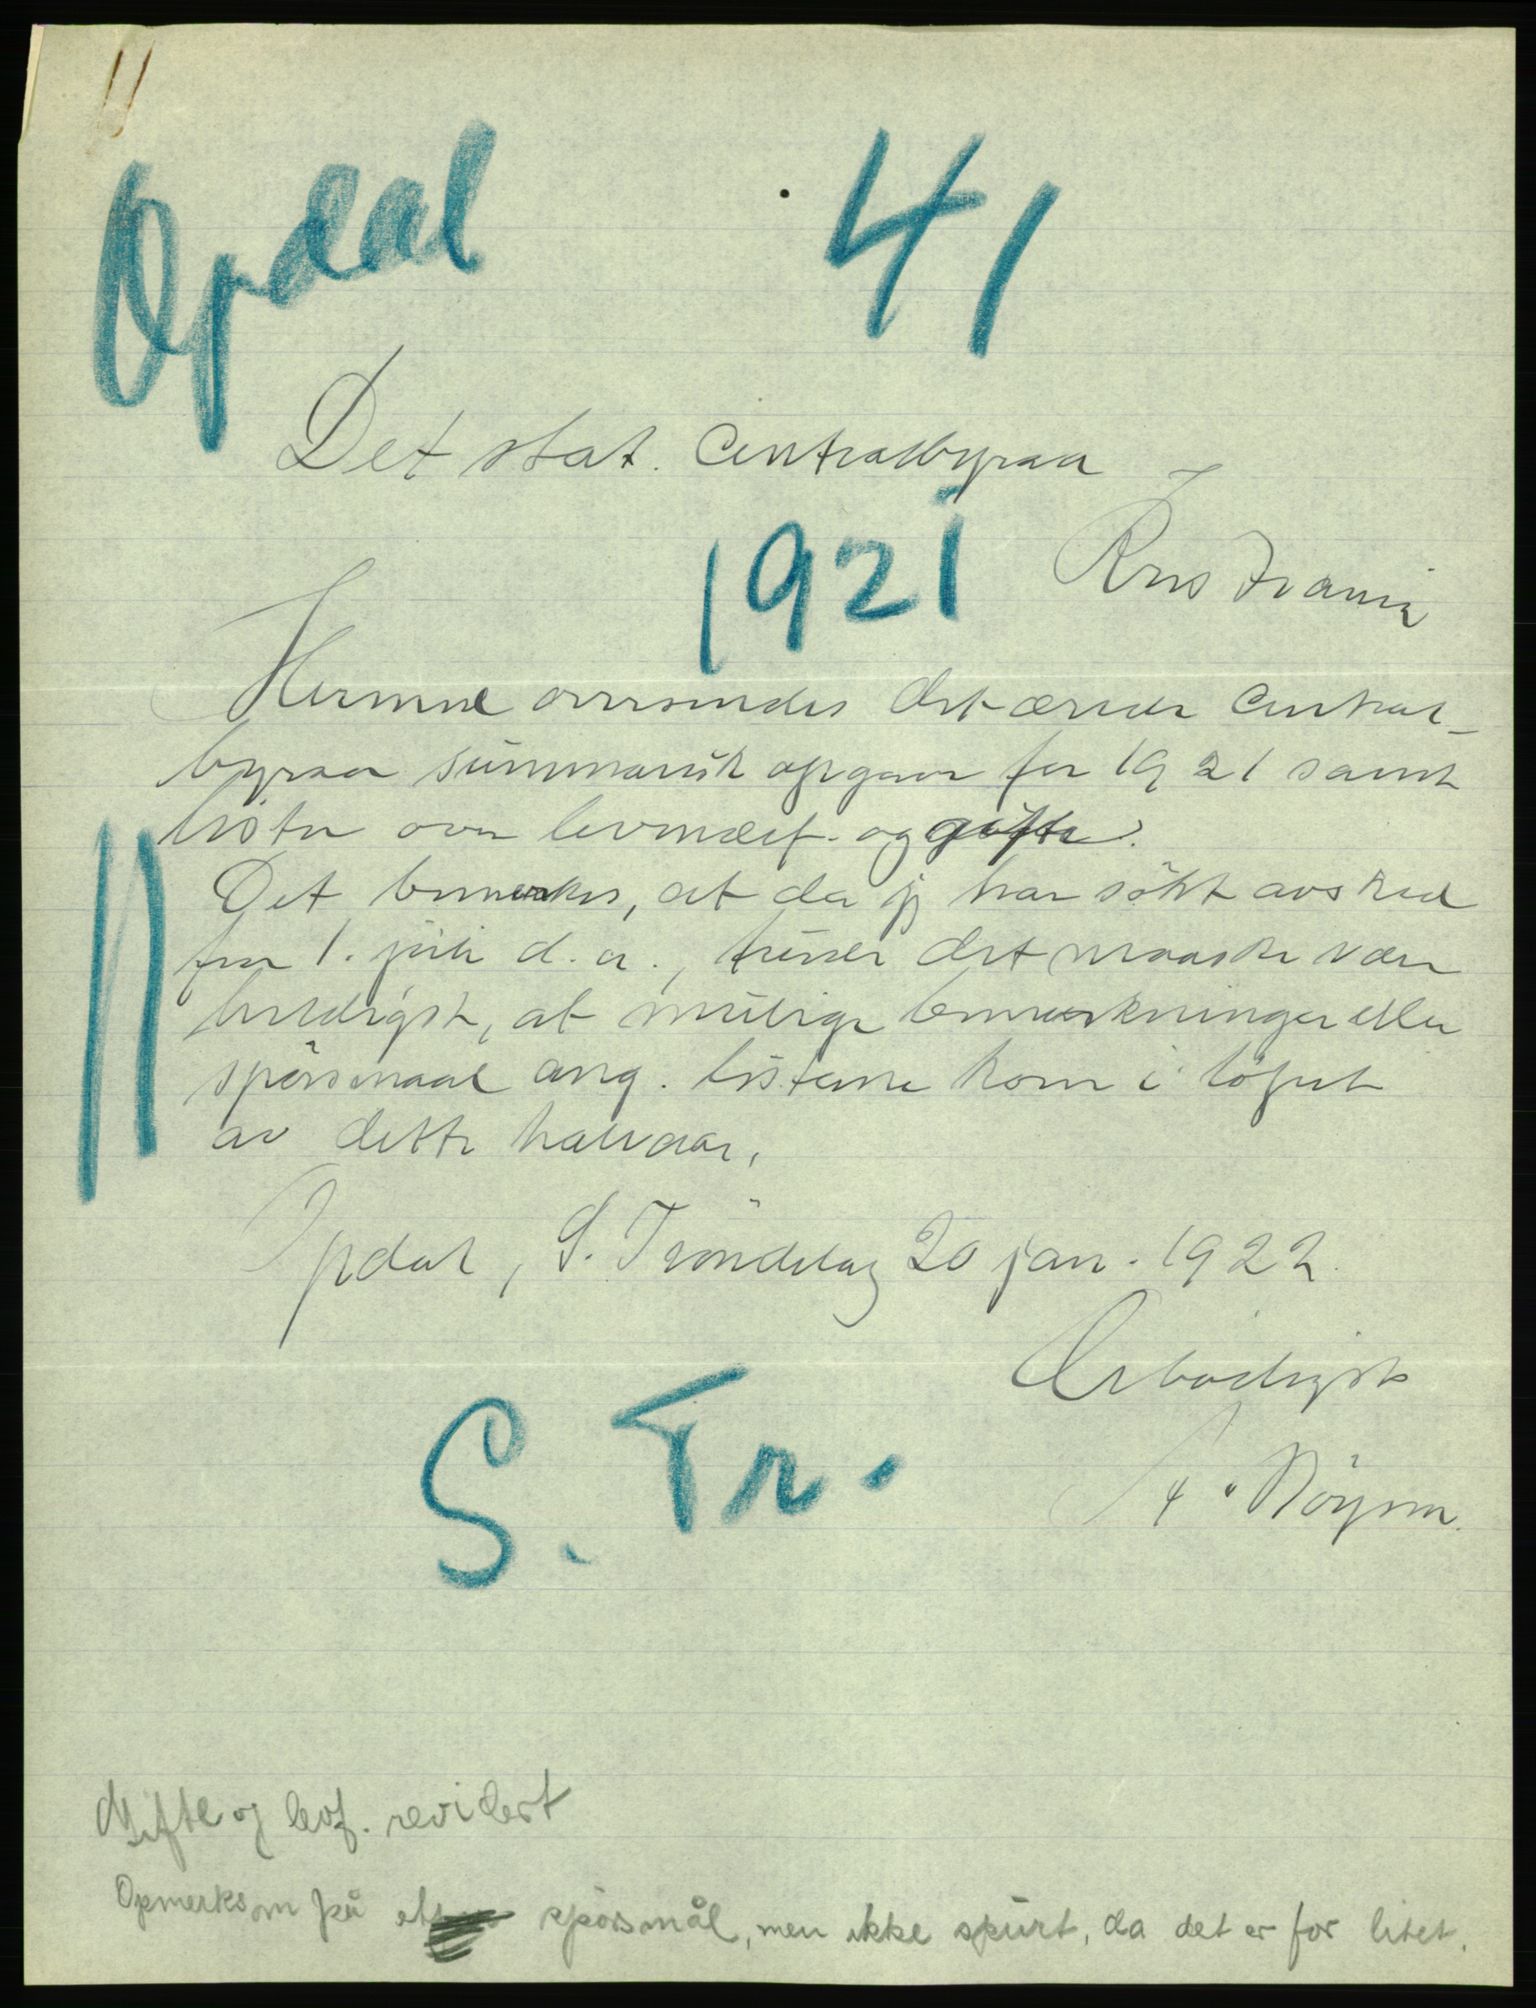 Opdal 41
Det stat. Centralbyraa
1921 Kristiania
Hermed oversendes det ærede Central-
byraa summarisk opgave for 1921 samt
lister over levendef. og gifte.
Det bemerkes, at da jeg har sökt avsked
fra 1. juli d. a., turde det maaske være
heldigst, at mulige bemerkninger eller
spörsmaal ang. listerne kom i löpet
av dette halvaar.
Opdal, S. Tröndelag 20 jan. 1922.
Ærbödigst
S. Tr.
Gifte og levf. revidert
Opmerksom på et spörsmål, men ikke spurt, da det er for litet.